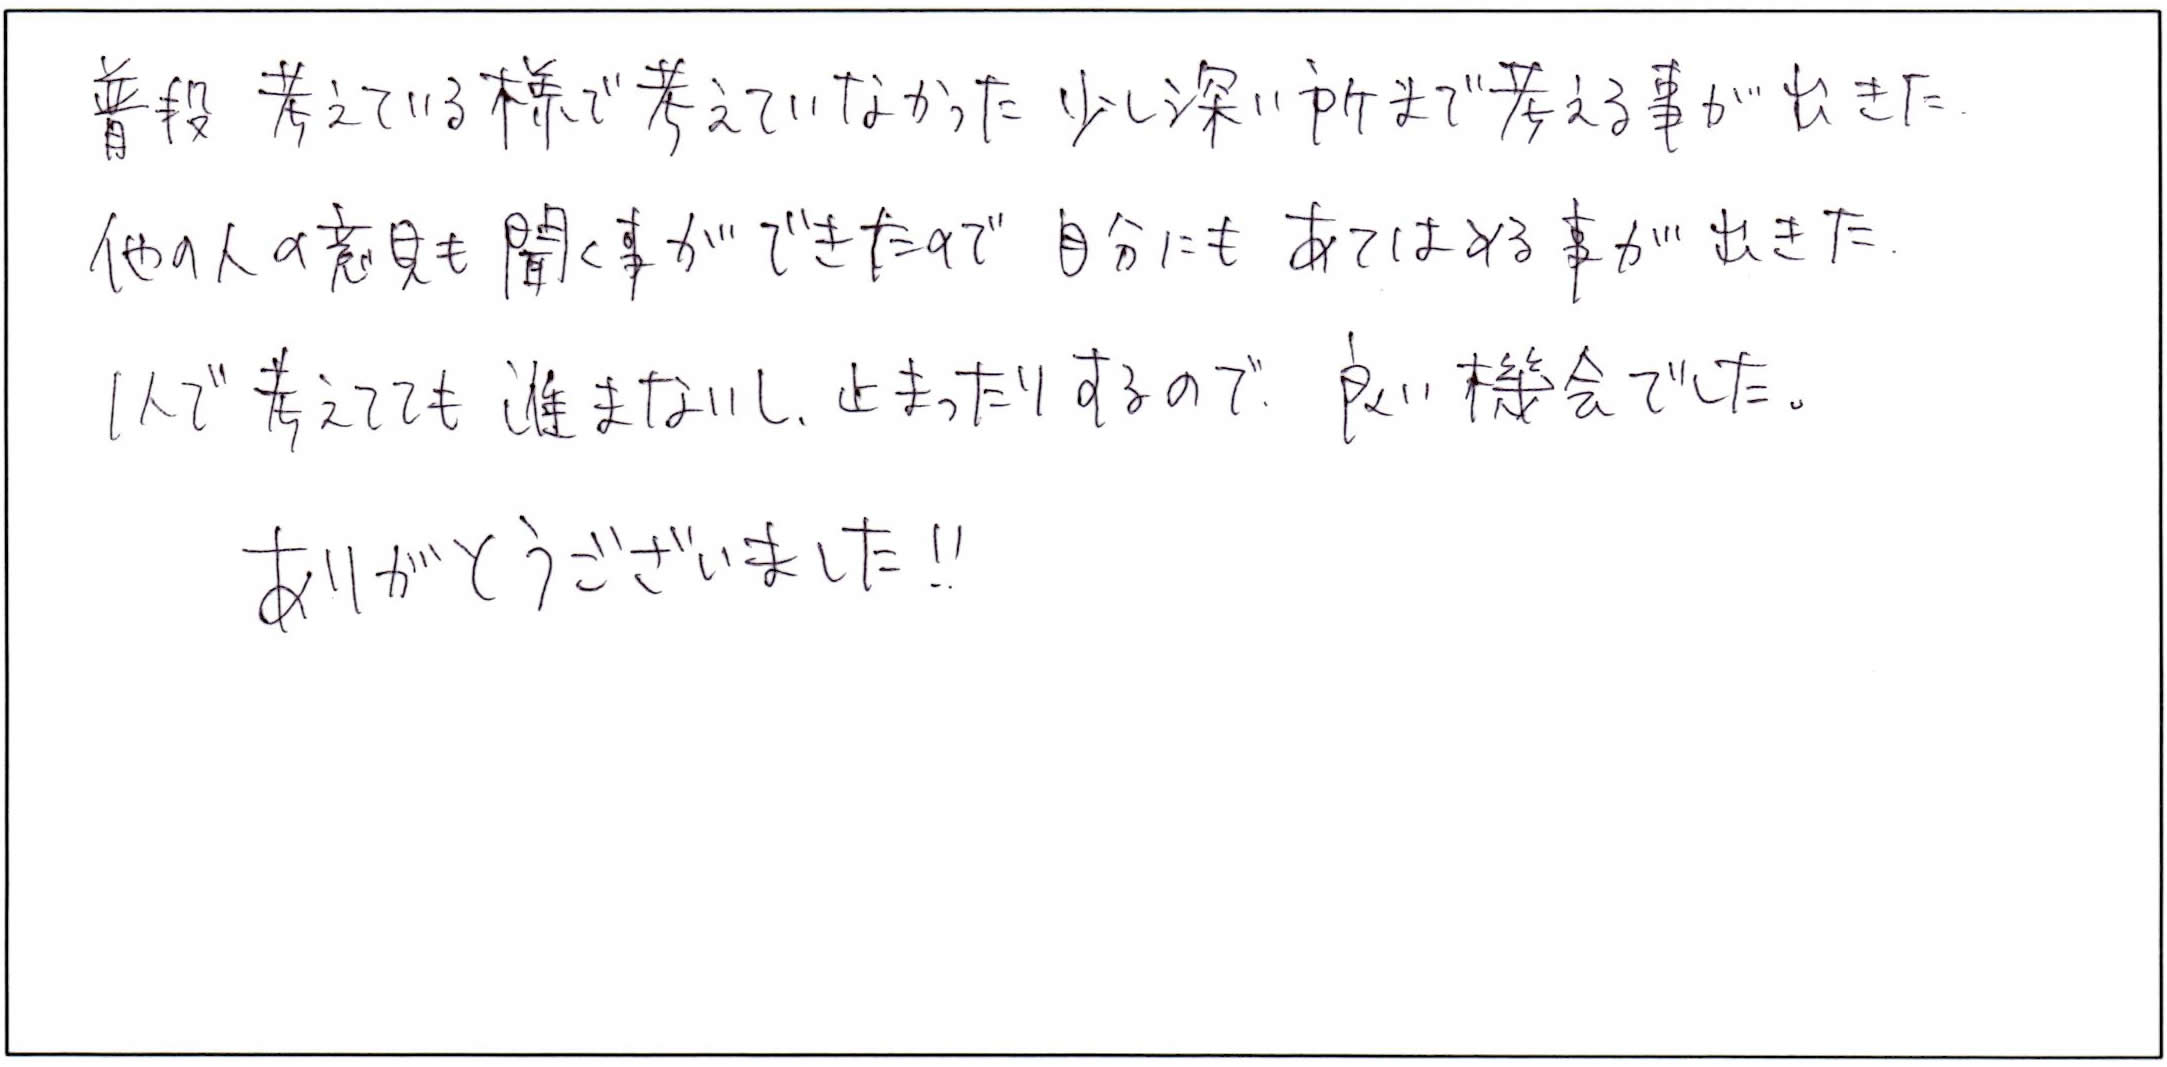 普段 考えている様で考えていなかった 少し深い所まで考える事が出きた.
他の人の意見も 聞く事ができたので 自分にも あてはめる事が出きた.
1人で考えてても 進まないし、止まったりするので、良い機会でした。
ありがとうございました!!